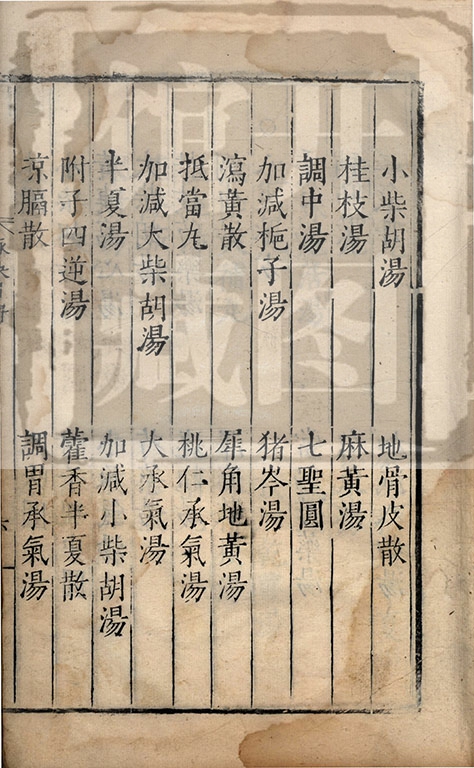 小柴胡湯 地骨皮散
桂枝湯 麻黃湯
調中湯 七聖圓
加減梔子湯 猪苓湯
瀉黃散 犀角地黃湯
抵當丸 桃仁承氣湯
加減大柴胡湯 大承氣湯
半夏湯 加減小柴胡湯
附子四逆湯 藿香半夏散
涼膈散 調胃承氣湯